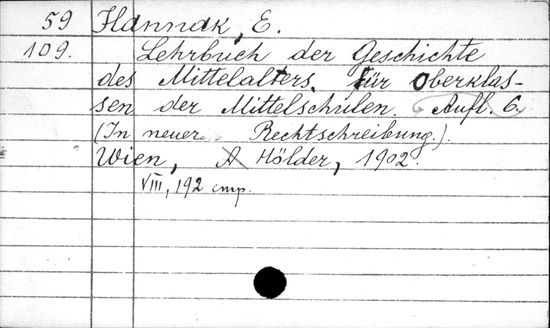 59 Hannak, E.
109. Lehrbuch der Geschichte
des Mittelalters. für Oberklas-
sen der Mittelschulen. Aufl. 6.
(In neuer Rechtschreibung.).
Wien, A Hölder, 1902.
VIII, 192 стр.